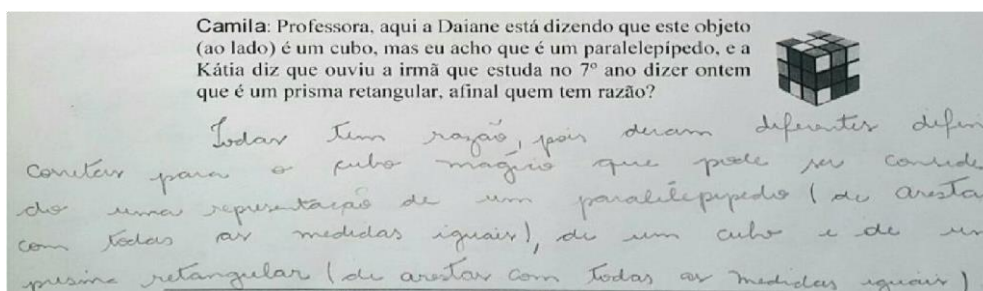 Camila: Professora, aqui a Daiane está dizendo que este objeto
(ao lado) é um cubo, mas eu acho que é um paralelepípedo, e a
Kátia diz que ouviu a irmã que estuda no 7º ano dizer ontem
que é um prisma retangular, afinal quem tem razão?
Todas tem razão, pois deram diferentes defini
corretas para o cubo mágico que pode ser conside
do uma representação de um paralelepypedo (de aresta
com todas as medidas iguais), de um cubo e de um
prisma retangular (de arestas com todas as medidas iguais)